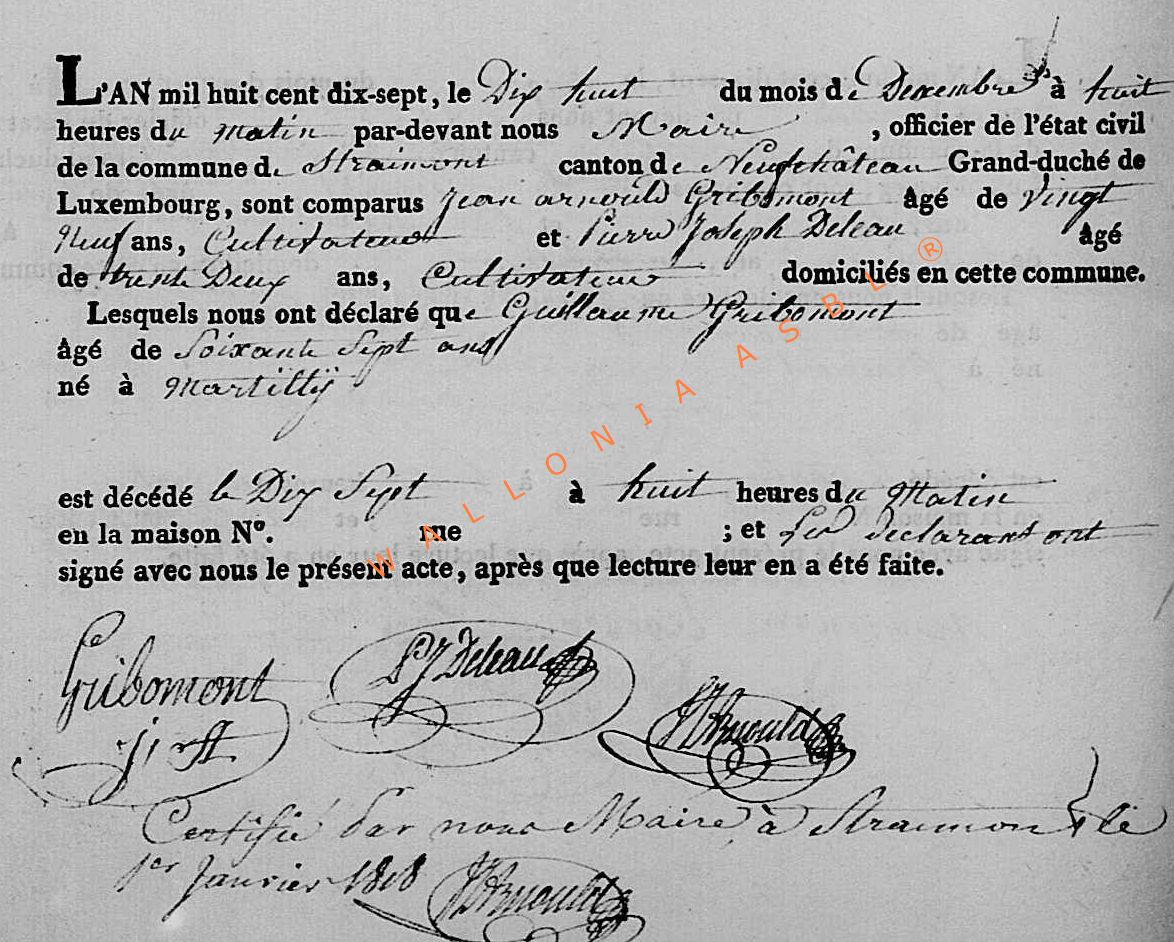 L'AN mil huit cent dix-sept, le Dix huit du mois de Decembre à huit
heures du Matin par-devant nous Maire , officier de l'état civil
de la commune de Straimont canton de Neufchâteau Grand-duché de
Luxembourg, sont comparus Jean arnould Gribomont âgé de Vingt
Neuf ans, Cultivateur et Pierre Joseph Deleau âgé
de trente Deux ans, Cultivateur domiciliés en cette commune.
Lesquels nous ont déclaré que Guillaume Gribomont
âgé de Soixante Sept ans
né à Martilly
est décédé le Dix Sept à huit heures du Matin
en la maison N°. rue ; et Les declarant ont
signé avec nous le présent acte, après que lecture leur en a été faite.
Gribomont
P J Deleau
Arnould
Certifié par nous Maire à Straimont le
1er Janvier 1818
Arnould
WALLONIA ASBL ®